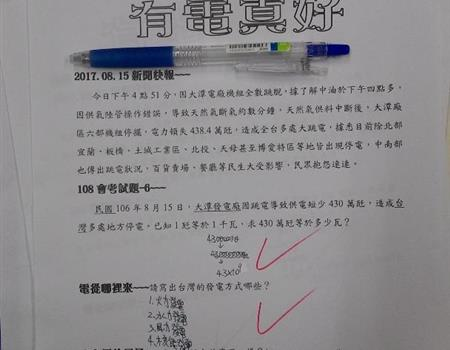 有電真好
2017.08.15 新聞快報~~
今日下午 4 點 51 分，因大潭電廠機組全數跳脫，據了解中油於下午四點多，
因供氣陸管操作錯誤，導致天然氣斷氣約數分鐘，天然氣供料中斷後，大潭廠
區六部機組停擺，電力損失 438.4 萬瓩，造成全台多處大跳電，據悉目前除北部
宜蘭、板橋、土城工業區、北投、天母甚至博愛特區等地皆出現停電，中南部
也傳出跳電狀況，百貨賣場、餐廳等民生大受影響，民眾抱怨連連。
108 會考試題-6~~
民國 106 年 8 月 15 日，大潭發電廠因跳電導致供電短少 430 萬瓩，造成台
灣多處地方停電。已知 1 瓩等於 1 千瓦，求 430 萬瓩等於多少瓦？
4.3×10⁹
電從哪裡來~~請寫出台灣的發電方式哪些？
1. 火力發電
2. 水力發電
3. 風力發電
4.